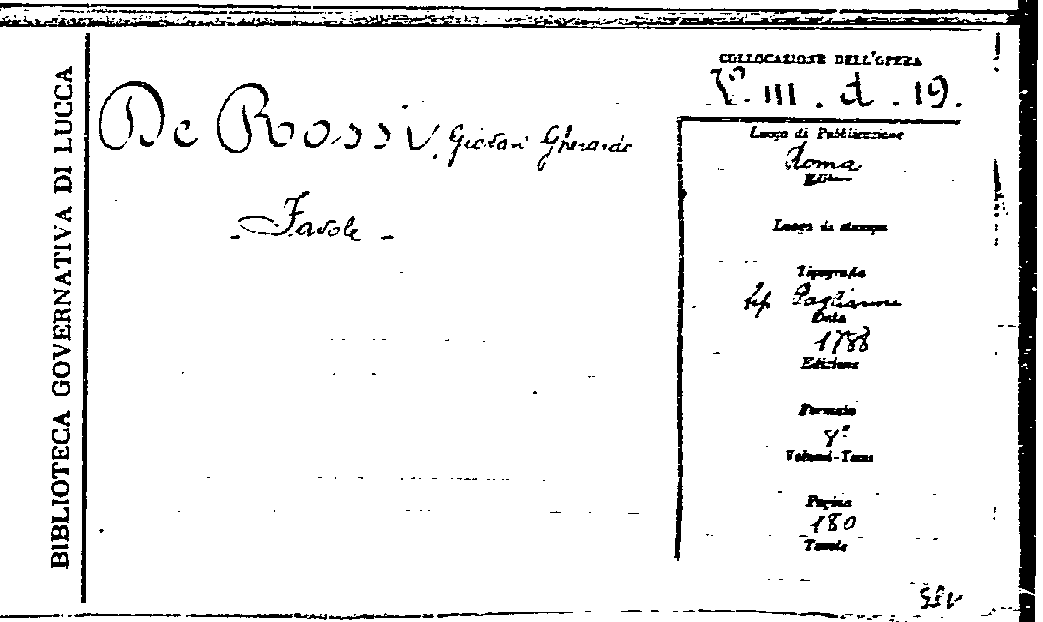 BIBLIOTECA GOVERNATIVA DI LUCCA
De Rossi, Giovani Gherardo
- Favole -
COLLOCAZIONE DELL'OPERA
III. d. 19.
Luogo di Pubblicazione
Roma
Editore
Luogo di stampa
Tipografia
tip. Pagliarini
Data
1788
Edizione
Formato
8º
Volumi-Tomi
Pagine
180
Tavole